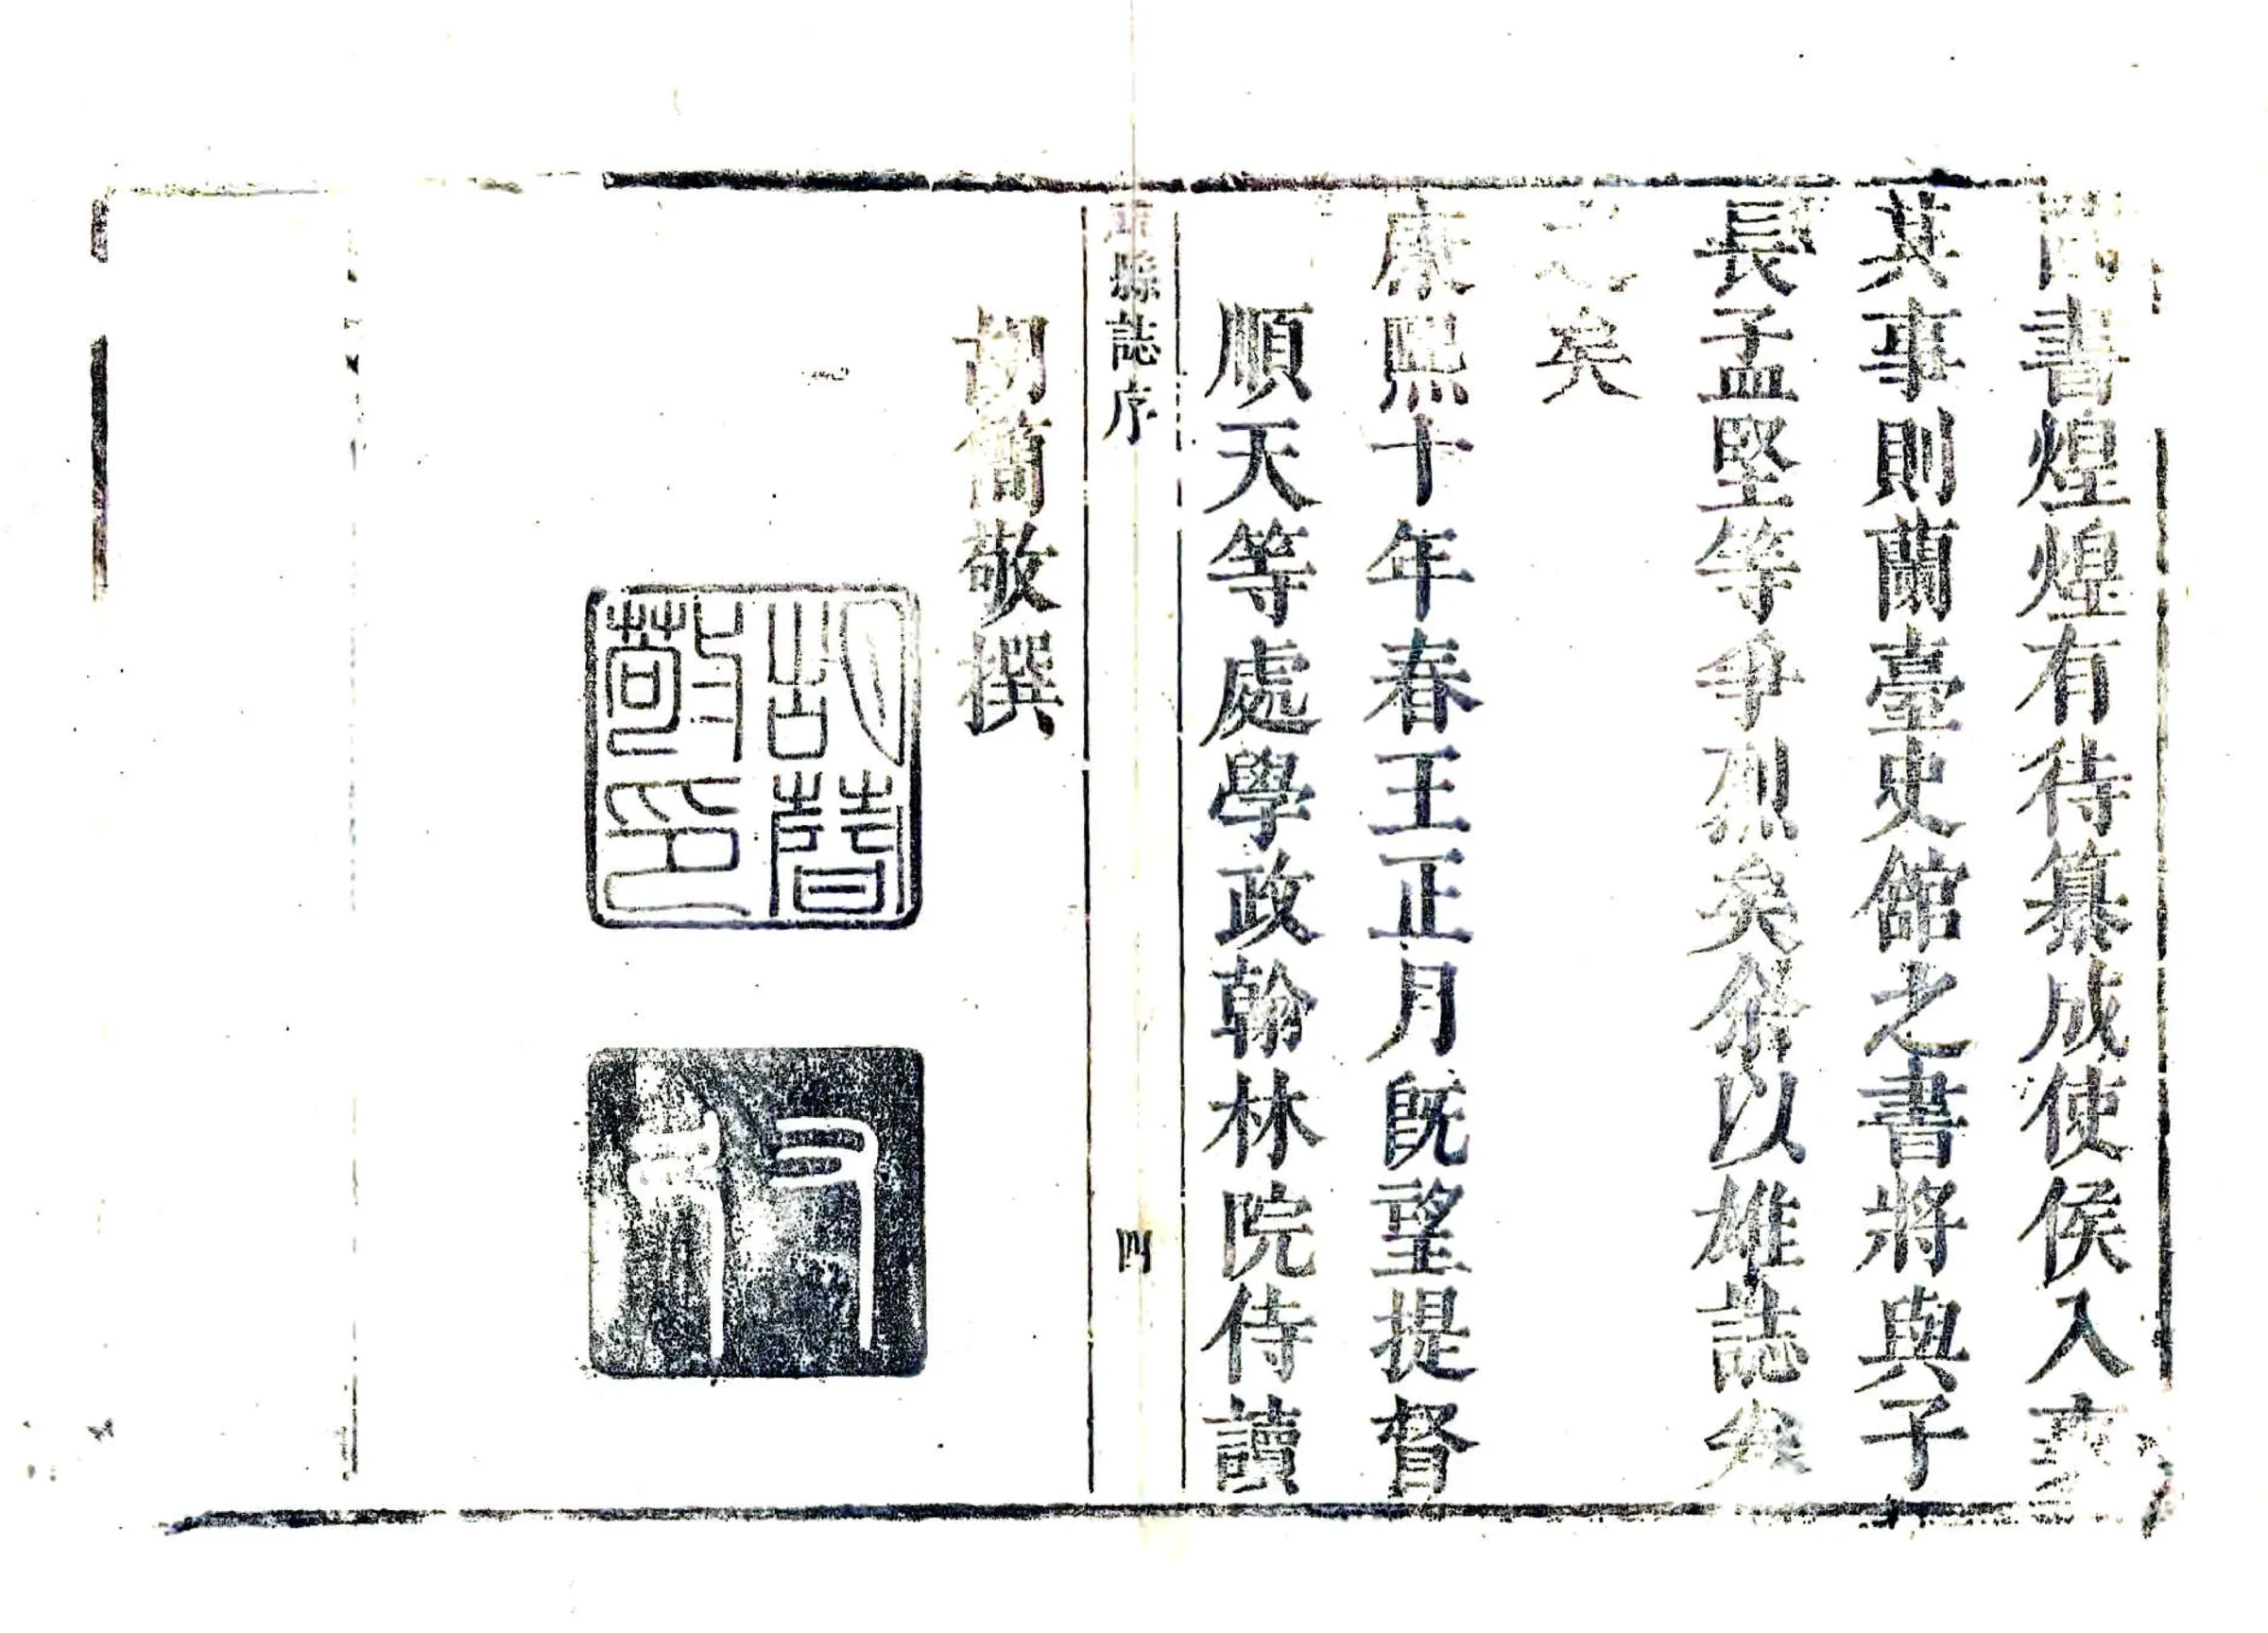 書煌煌有待纂成使侯入
其事則蘭臺史館之書將與子
長孟堅等爭烈矣余以雄誌
矣
康熙十年春王正月旣望提督
順天等處學政翰林院侍讀
縣誌序
四
胡簡敬撰
胡簡敬印
又